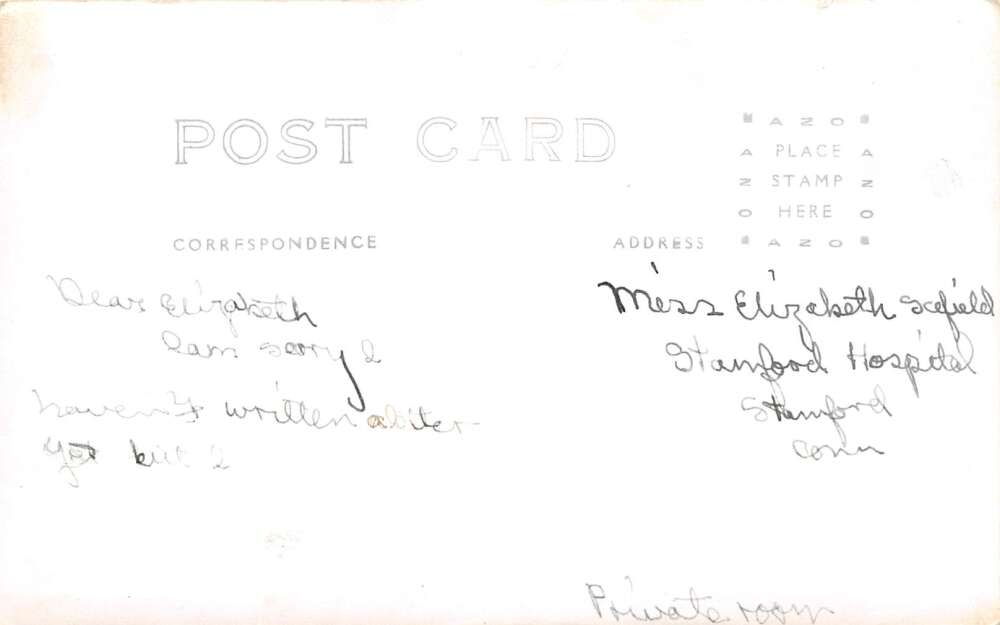 POST CARD
AZO
A PLACE A
Z STAMP Z
O HERE O
CORRESPONDENCE
ADDRESS
AZO
Dear Elizabeth
I am sorry I
haven't written a liter
yet but I
Miss Elizabeth Scefield
Stamford Hospital
Stamford
Conn
Private room